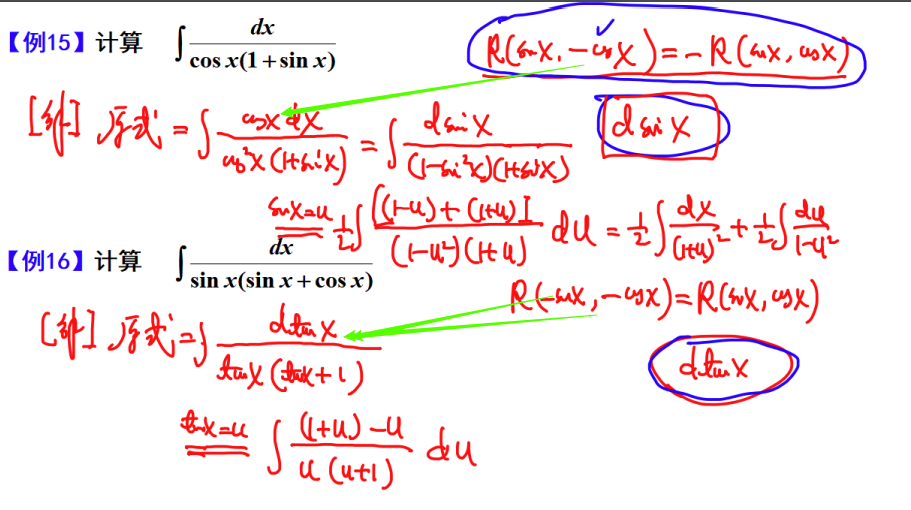 【例15】计算 ∫ dx / cos x(1+sin x)
R(sinx, -cosx) = -R(sinx, cosx)
[解] 原式 = ∫ cosx dx / cos²x(1+sinx) = ∫ dsinx / (1-sin²x)(1+sinx)
dsinx
sinx=u 1/2 ∫ [(1-u)+(1+u)] / (1-u²)(1+u) du = 1/2 ∫ dx / (1+u)² + 1/2 ∫ du / 1-u²
【例16】计算 ∫ dx / sin x(sin x+cos x)
R(-sinx, -cosx) = R(sinx, cosx)
[解] 原式 = ∫ dtanx / tanx(tanx+1)
dtanx
tanx=u ∫ (1+u)-u / u(u+1) du